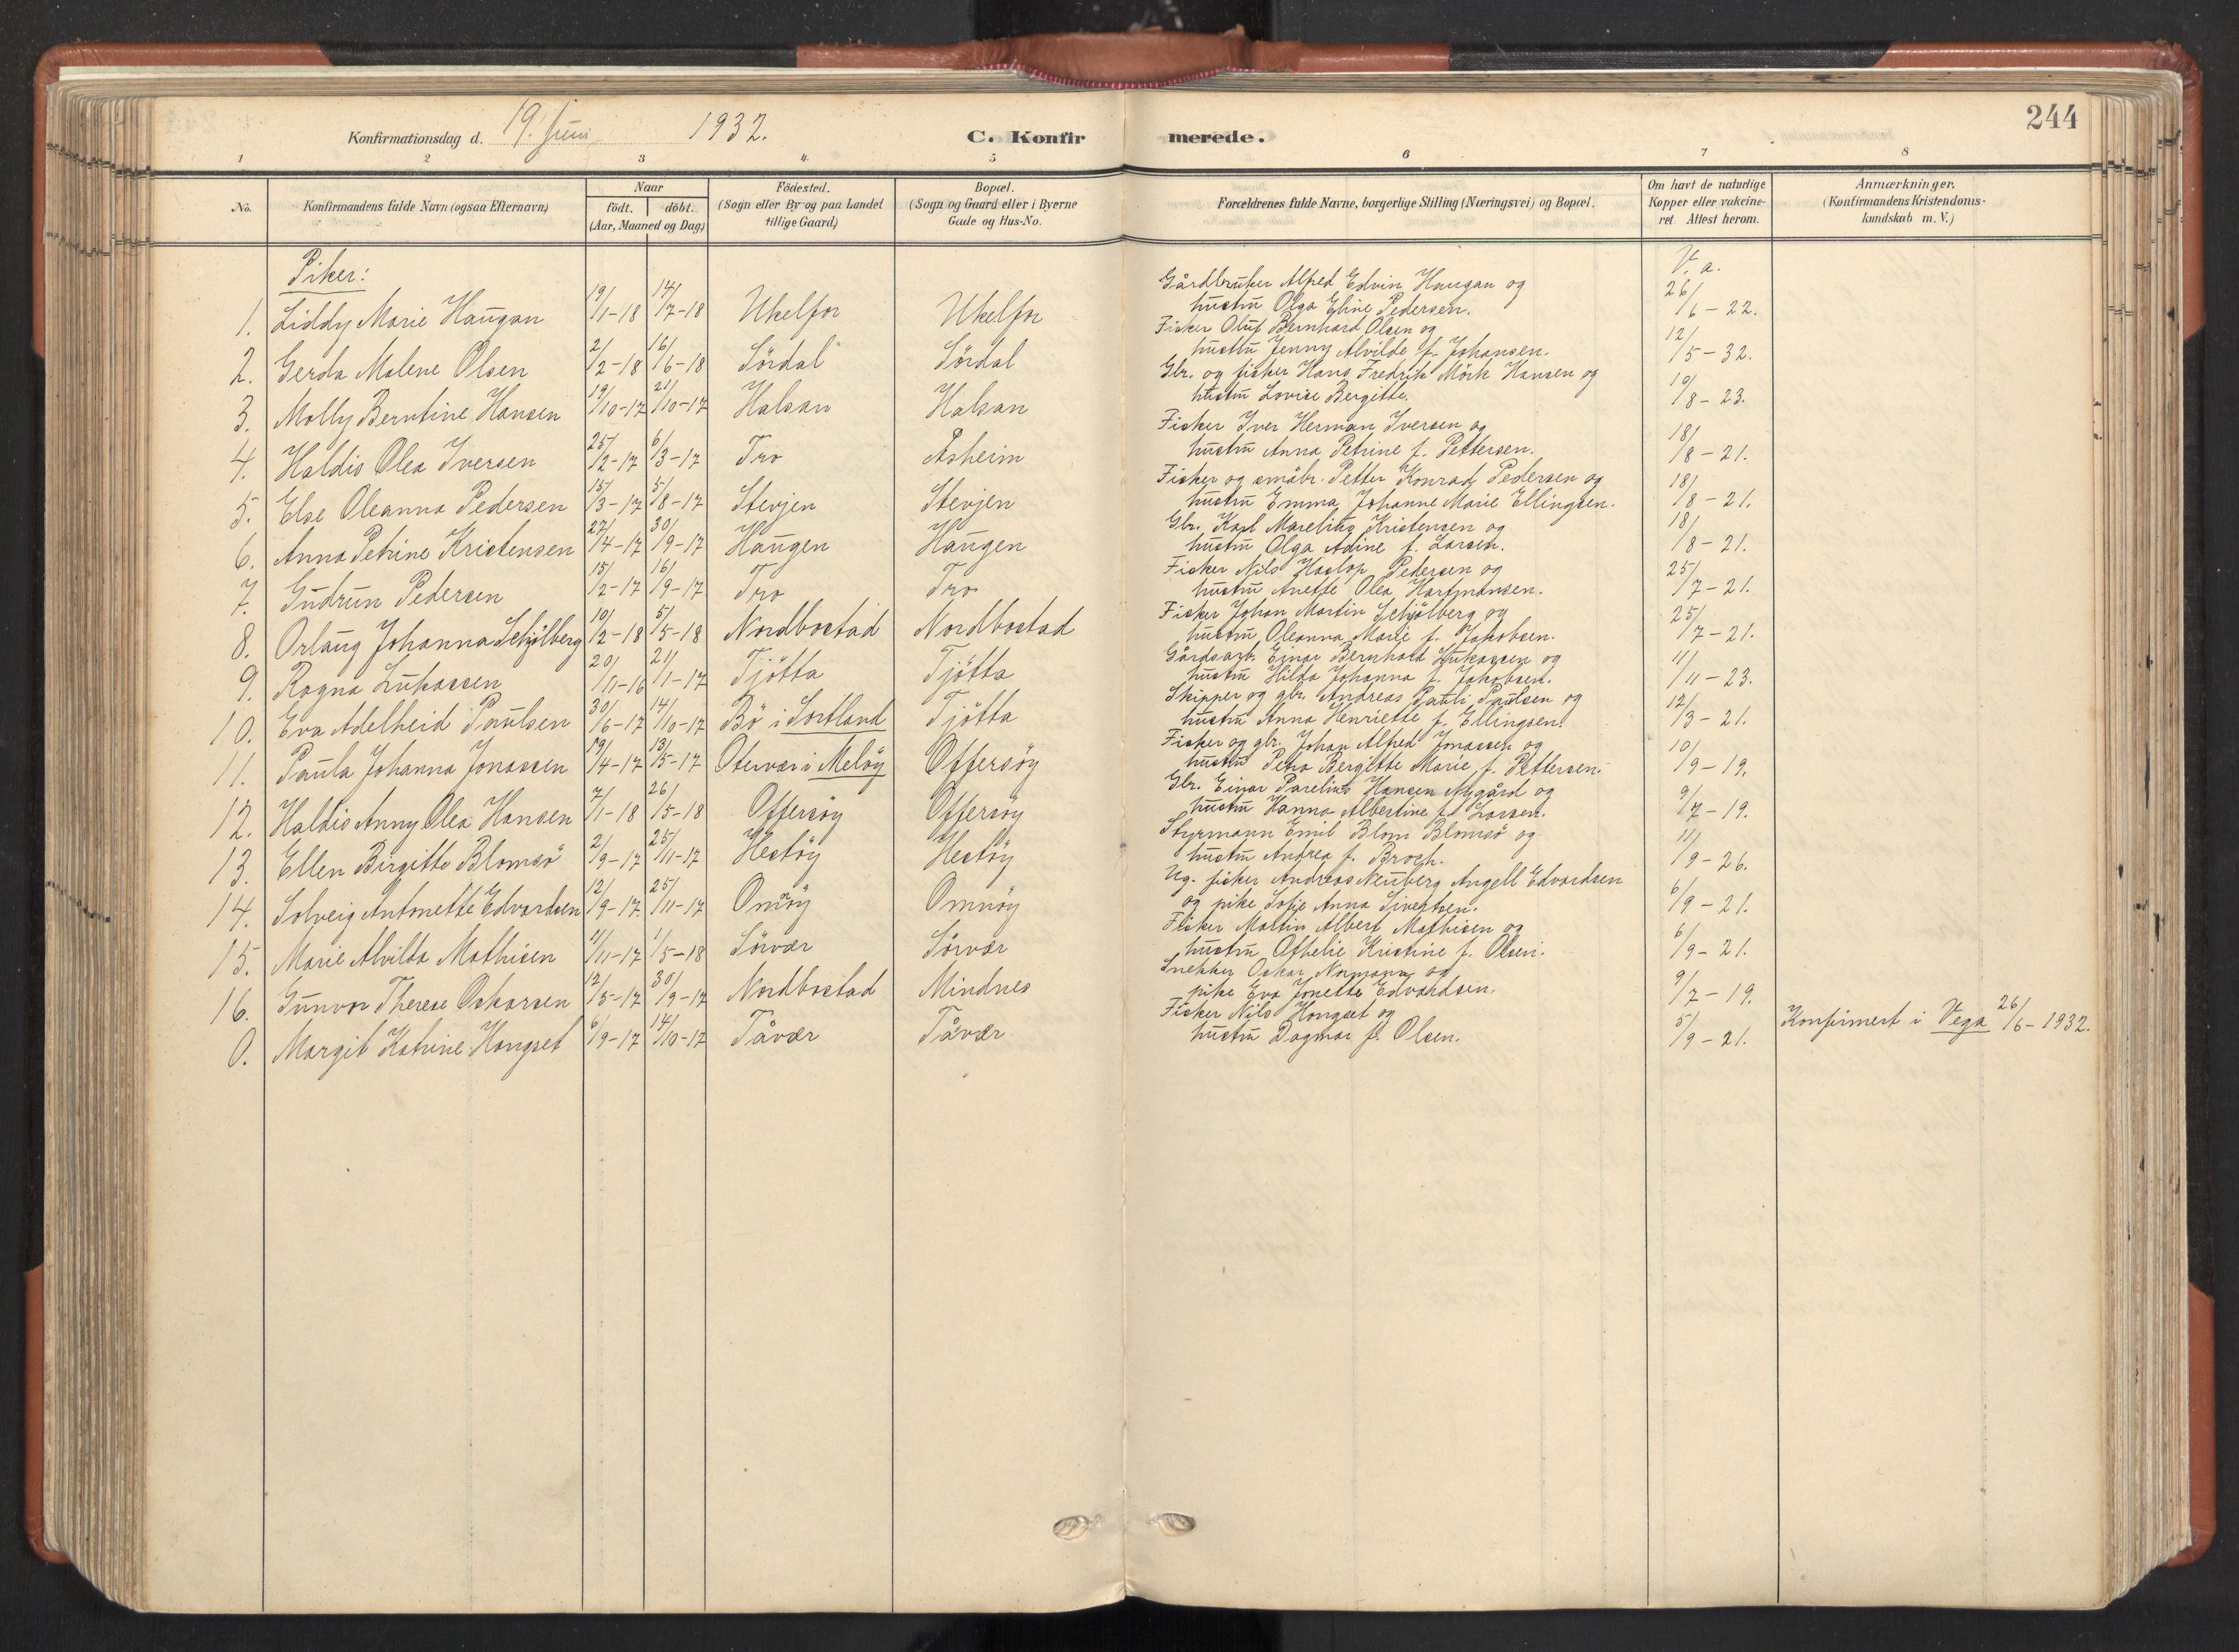 244
Konfirmationsdag d. 19. Juni 1932. C. Konfirmerede.
1 2 3 4 5 6 7 8
No. Konfirmandens fulde Navn (ogsaa Efternavn) Naar födt. döbt. (Aar, Maaned og Dag) Födested. (Sogn eller By og paa Landet tillige Gaard) Bopæl. (Sogn og Gaard eller i Byerne Gade og Hus-No. Forældrenes fulde Navne, borgerlige Stilling (Næringsvei) og Bopæl. Om havt de naturlige Kopper eller vakcineret. Attest herom. Anmærkninger. (Konfirmandens Kristendomskundskab m. V.)
Piker: V. a.
1. Liddy Marie Haugan 19/1-18 14/7-18 Ukelfor Ukelfor Gårdbruker Alfred Edvin Haugan og hustru Olga Eline Pedersen. 26/6-22.
2. Gerda Malene Olsen 2/2-18 16/6-18 Sördal Sördal Fisker Oluf Bernhard Olsen og hustru Jenny Alvilde f. Johansen. 12/5-32.
3. Molly Berntine Hansen 19/10-17 21/10-17 Halsan Halsan Gbr. og fisker Hans Fredrik Mörk Hansen og hustru Lovise Bergitte. 10/8-23.
4. Haldis Olea Iversen 25/2-17 6/3-17 Tro Åsheim Fisker Iver Herman Iversen og hustru Anna Petrine f. Pettersen. 18/8-21.
5. Else Oleanna Pedersen 15/3-17 5/8-17 Stevjen Stevjen Fisker og småbr. Petter Konrad Pedersen og hustru Emma Johanne Marie Ellingsen. 18/8-21.
6. Anna Petrine Kristensen 27/4-17 30/9-17 Haugen Haugen Gbr. Karl Marelius Kristensen og hustru Olga Adine f. Larsen. 18/8-21.
7. Gudrun Pedersen 15/2-17 16/9-17 Tro Tro Fisker Nils Haslop Pedersen og hustru Anette Olea Hartmansen. 25/7-21.
8. Orlaug Johanna Schjölberg 10/2-18 5/5-18 Nordbostad Nordbostad Fisker Johan Martin Schjölberg og hustru Oleanna Marie f. Jakobsen. 25/7-21.
9. Ragna Lukassen 20/11-16 21/1-17 Tjötta Tjötta Gårdsarb. Einar Bernhard Lukassen og hustru Hilda Johanna f. Jakobsen. 11/11-23.
10. Eva Adelheid Paulsen 30/6-17 14/10-17 Bö i Sortland Tjötta Skipper og gbr. Andreas Pauli Paulsen og hustru Anna Henriette f. Ellingsen. 12/3-21.
11. Paula Johanna Jonassen 19/4-17 13/5-17 Otervær i Melöy Offersöy Fisker og gbr. Johan Alfred Jonassen og hustru Petra Bergitte Marie f. Pettersen. 10/9-19.
12. Haldis Anny Olea Hansen 7/1-18 26/5-18 Offersöy Offersöy Gbr. Einar Parelius Hansen Nygård og hustru Hanna Albertine f. Larsen. 9/7-19.
13. Ellen Birgitte Blomsö 2/9-17 25/11-17 Hestöy Hestöy Styrmann Emil Blom Blomsö og hustru Andrea f. Broch. 11/9-26.
14. Solveig Antonette Edvardsen 12/9-17 25/11-17 Omnöy Omnöy Ug. fisker Andreas Neuberg Angell Edvardsen og pike Sofie Anna Sivertsen. 6/9-21.
15. Marie Alvilda Mathisen 11/11-17 1/5-18 Sörvær Sörvær Fisker Martin Albert Mathisen og hustru Othelie Kristine f. Olsen. 6/9-21.
16. Gunvor Therese Oskarsen 12/5-17 30/9-17 Nordbostad Mindnes Snekker Oskar Normann og pike Eva Jonette Edvardsen. 9/7-19.
0. Margit Katrine Hongset 6/9-17 14/10-17 Tåvær Tåvær Fisker Nils Hongset og hustru Dagmar f. Olsen. 5/9-21. Konfirmert i Vega 26/6-1932.